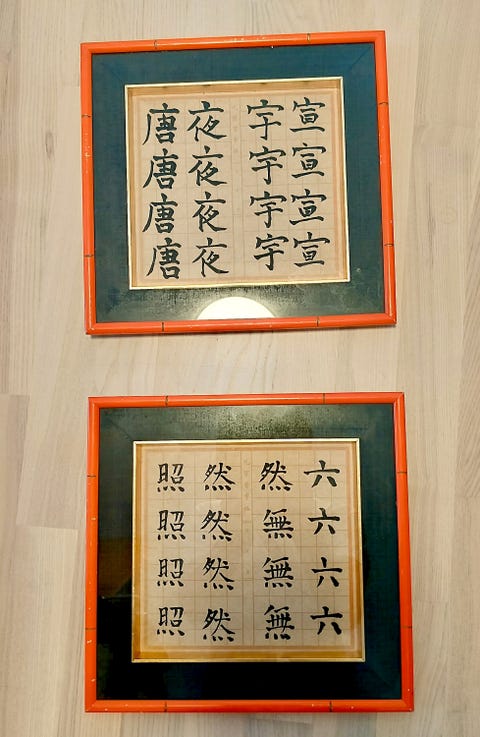 宣宣宣宣
宇宇宇宇
夜夜夜夜
唐唐唐唐
六六六六
然無無無
然然然然
照照照照